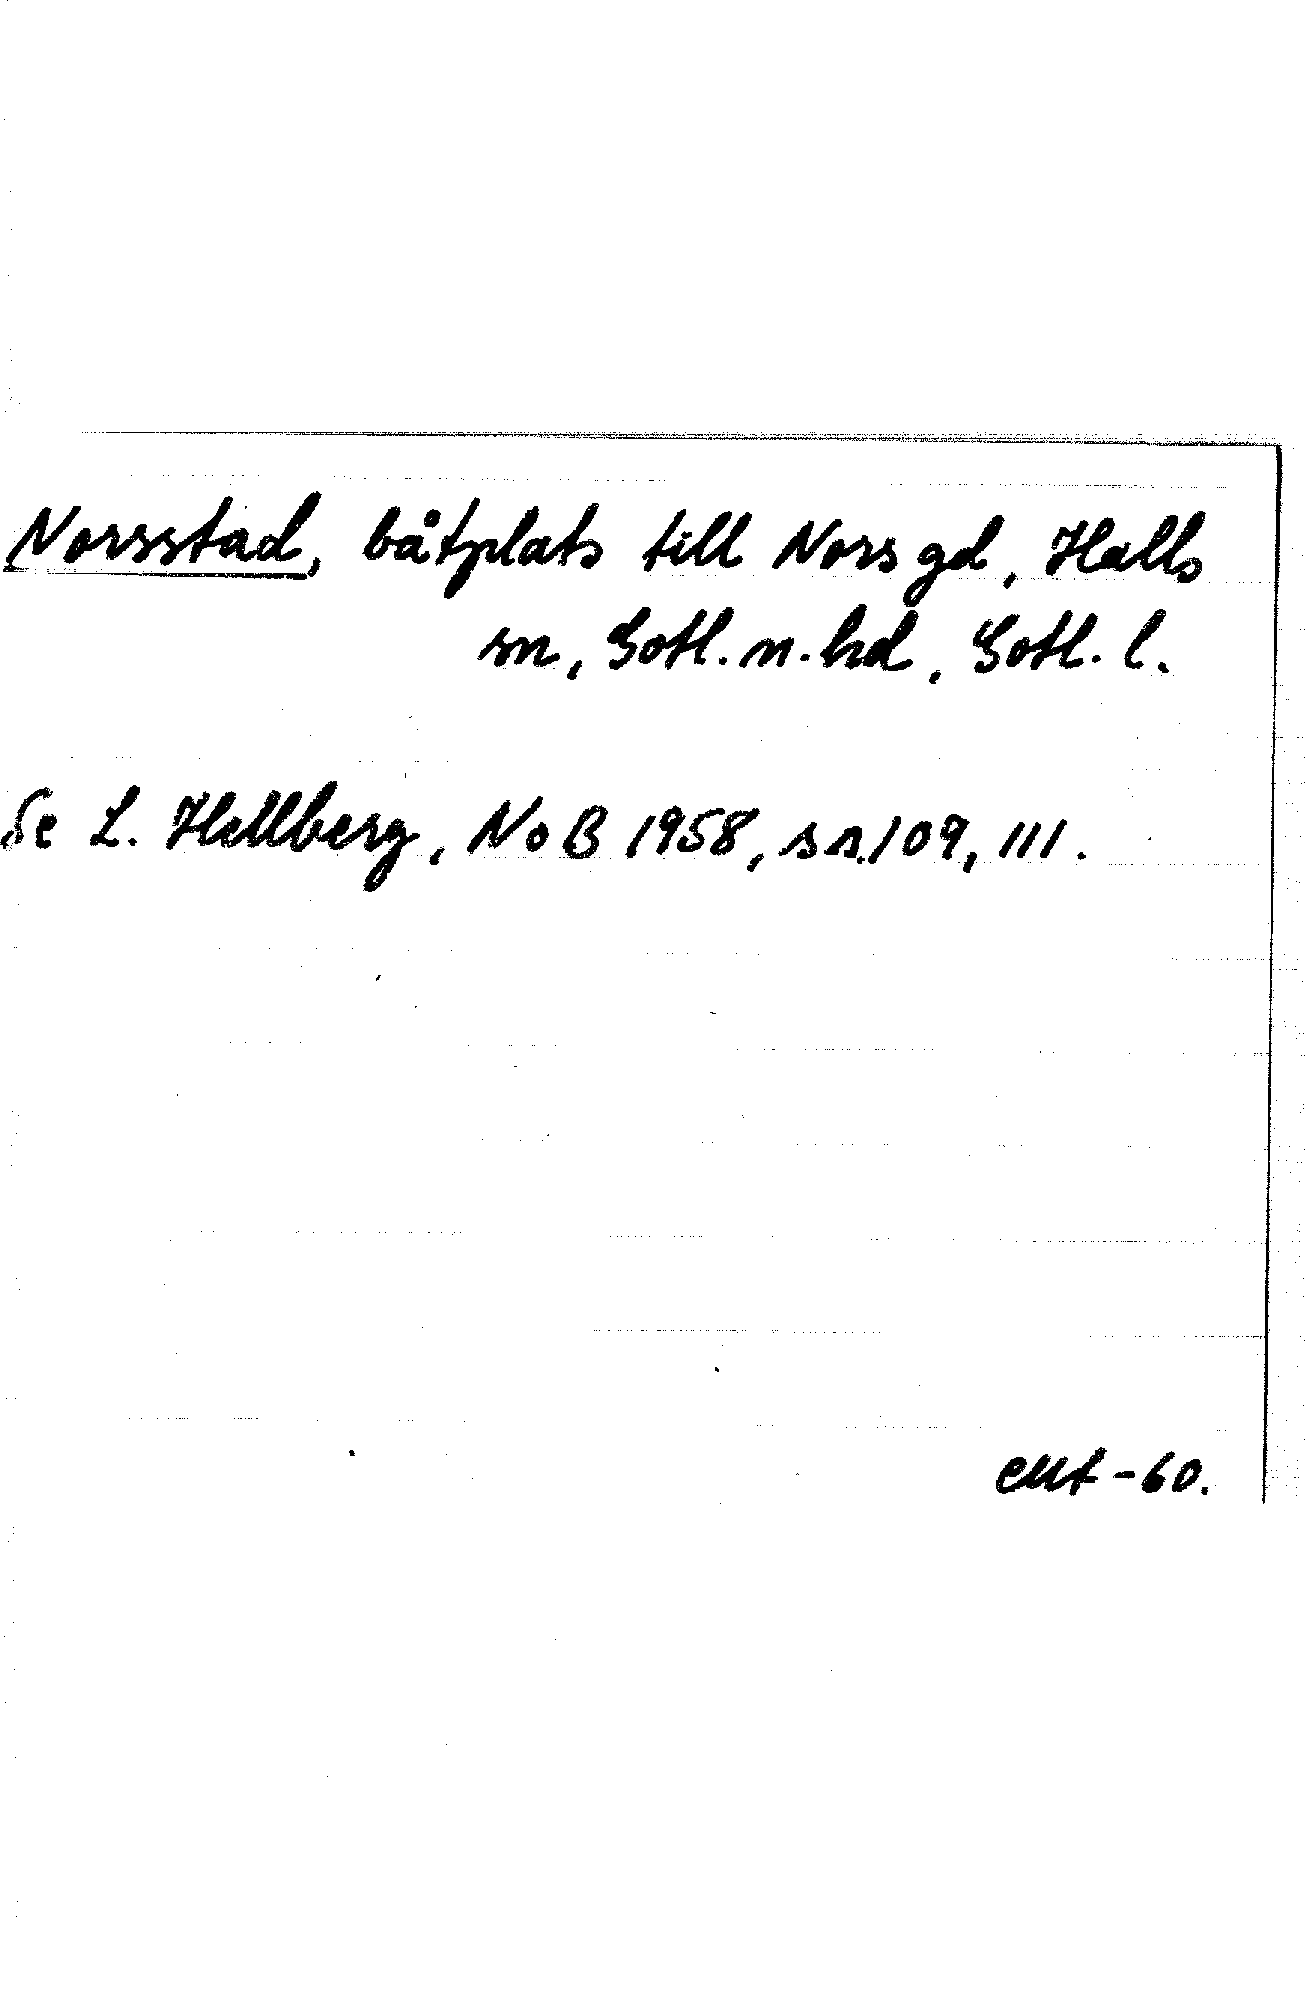 Norsstad, båtplats till Nors gd, Halls
sn, Gotl. n. hd, Gotl. l.
Se L. Hellberg, NoB 1958, ss. 109, 111.
-60.